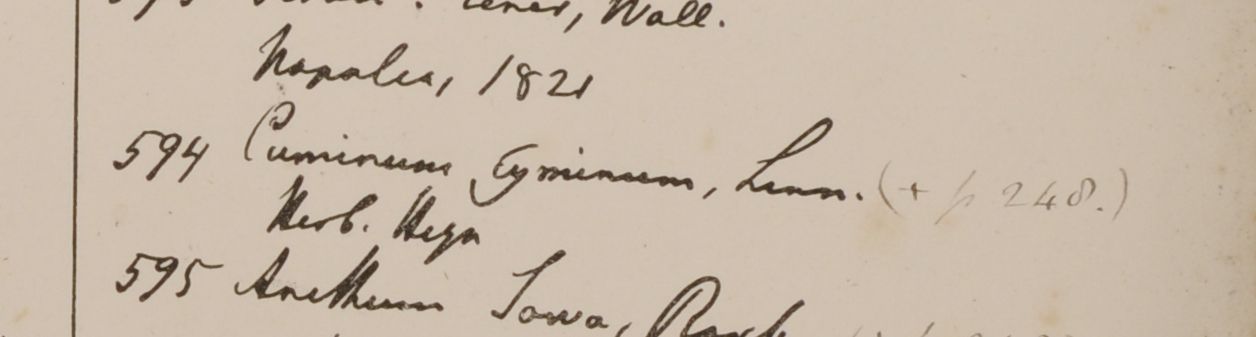 tener, Wall.
Napalia, 1821
594 Cuminum Cyminum, Linn. (+ p 248.)
Herb. Heyn
595 Anethum Sowa, Roxb